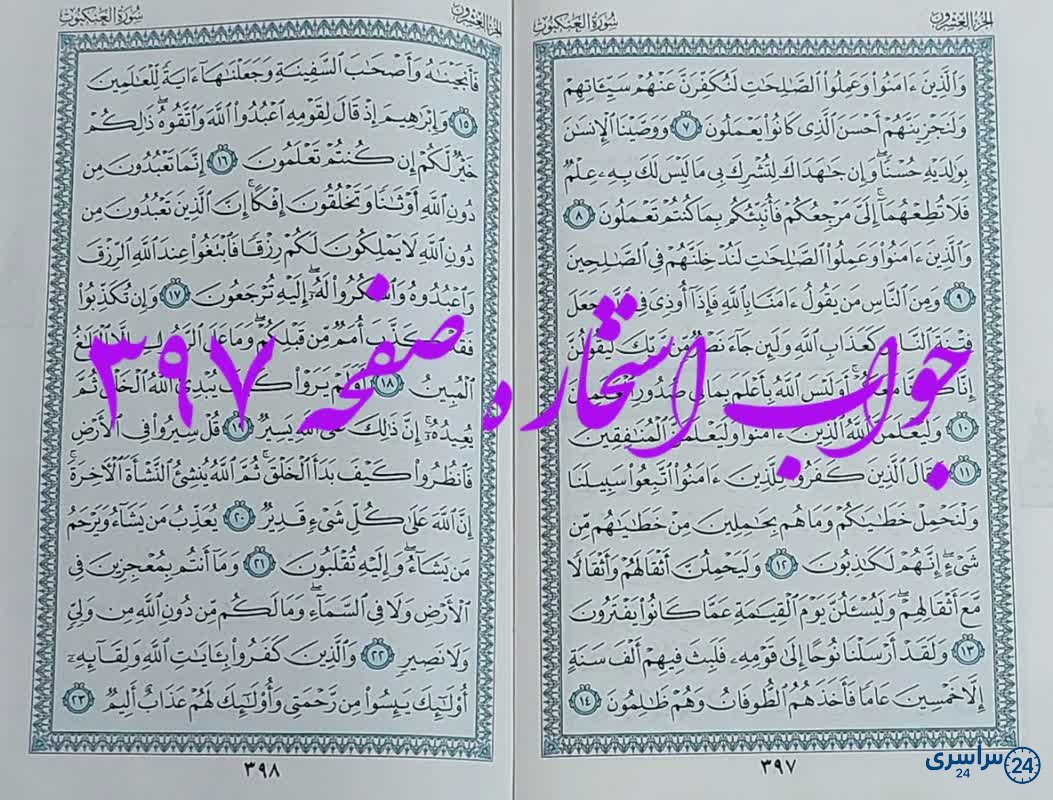 الجزء العشرون
سورة العنكبوت
وَٱلَّذِينَ ءَامَنُوا۟ وَعَمِلُوا۟ ٱلصَّـٰلِحَـٰتِ لَنُكَفِّرَنَّ عَنْهُمْ سَيِّـَٔاتِهِمْ
وَلَنَجْزِيَنَّهُمْ أَحْسَنَ ٱلَّذِى كَانُوا۟ يَعْمَلُونَ ٧ وَوَصَّيْنَا ٱلْإِنسَـٰنَ
بِوَٰلِدَيْهِ حُسْنًا ۖ وَإِن جَـٰهَدَاكَ لِتُشْرِكَ بِى مَا لَيْسَ لَكَ بِهِۦ عِلْمٌ
فَلَا تُطِعْهُمَآ ۚ إِلَىَّ مَرْجِعُكُمْ فَأُنَبِّئُكُم بِمَا كُنتُمْ تَعْمَلُونَ ٨
وَٱلَّذِينَ ءَامَنُوا۟ وَعَمِلُوا۟ ٱلصَّـٰلِحَـٰتِ لَنُدْخِلَنَّهُمْ فِى ٱلصَّـٰلِحِينَ
٩ وَمِنَ ٱلنَّاسِ مَن يَقُولُ ءَامَنَّا بِٱللَّهِ فَإِذَآ أُوذِىَ فِى ٱللَّهِ جَعَلَ
فِتْنَةَ ٱلنَّاسِ كَعَذَابِ ٱللَّهِ وَلَئِن جَآءَ نَصْرٌ مِّن رَّبِّكَ لَيَقُولُنَّ
إِنَّا كُنَّا مَعَكُمْ ۚ أَوَلَيْسَ ٱللَّهُ بِأَعْلَمَ بِمَا فِى صُدُورِ ٱلْعَـٰلَمِينَ
١٠ وَلَيَعْلَمَنَّ ٱللَّهُ ٱلَّذِينَ ءَامَنُوا۟ وَلَيَعْلَمَنَّ ٱلْمُنَـٰفِقِينَ
١١ وَقَالَ ٱلَّذِينَ كَفَرُوا۟ لِلَّذِينَ ءَامَنُوا۟ ٱتَّبِعُوا۟ سَبِيلَنَا
وَلْنَحْمِلْ خَطَـٰيَـٰكُمْ وَمَا هُم بِحَـٰمِلِينَ مِنْ خَطَـٰيَـٰهُم مِّن
شَىْءٍ ۖ إِنَّهُمْ لَكَـٰذِبُونَ ١٢ وَلَيَحْمِلُنَّ أَثْقَالَهُمْ وَأَثْقَالًا
مَّعَ أَثْقَالِهِمْ ۖ وَلَيُسْـَٔلُنَّ يَوْمَ ٱلْقِيَـٰمَةِ عَمَّا كَانُوا۟ يَفْتَرُونَ
١٣ وَلَقَدْ أَرْسَلْنَا نُوحًا إِلَىٰ قَوْمِهِۦ فَلَبِثَ فِيهِمْ أَلْفَ سَنَةٍ
إِلَّا خَمْسِينَ عَامًا فَأَخَذَهُمُ ٱلطُّوفَانُ وَهُمْ ظَـٰلِمُونَ ١٤
٣٩٧
الجزء العشرون
سورة العنكبوت
فَأَنجَيْنَـٰهُ وَأَصْحَـٰبَ ٱلسَّفِينَةِ وَجَعَلْنَـٰهَآ ءَايَةً لِّلْعَـٰلَمِينَ
١٥ وَإِبْرَٰهِيمَ إِذْ قَالَ لِقَوْمِهِ ٱعْبُدُوا۟ ٱللَّهَ وَٱتَّقُوهُ ۖ ذَٰلِكُمْ
خَيْرٌ لَّكُمْ إِن كُنتُمْ تَعْلَمُونَ ١٦ إِنَّمَا تَعْبُدُونَ مِن
دُونِ ٱللَّهِ أَوْثَـٰنًا وَتَخْلُقُونَ إِفْكًا ۚ إِنَّ ٱلَّذِينَ تَعْبُدُونَ مِن
دُونِ ٱللَّهِ لَا يَمْلِكُونَ لَكُمْ رِزْقًا فَٱبْتَغُوا۟ عِندَ ٱللَّهِ ٱلرِّزْقَ
وَٱعْبُدُوهُ وَٱشْكُرُوا۟ لَهُۥٓ ۖ إِلَيْهِ تُرْجَعُونَ ١٧ وَإِن تُكَذِّبُوا۟
فَقَدْ كَذَّبَ أُمَمٌ مِّن قَبْلِكُمْ ۖ وَمَا عَلَى ٱلرَّسُولِ إِلَّا ٱلْبَلَـٰغُ
ٱلْمُبِينُ ١٨ أَوَلَمْ يَرَوْا۟ كَيْفَ يُبْدِئُ ٱللَّهُ ٱلْخَلْقَ ثُمَّ
يُعِيدُهُۥٓ ۚ إِنَّ ذَٰلِكَ عَلَى ٱللَّهِ يَسِيرٌ ١٩ قُلْ سِيرُوا۟ فِى ٱلْأَرْضِ
فَٱنظُرُوا۟ كَيْفَ بَدَأَ ٱلْخَلْقَ ۚ ثُمَّ ٱللَّهُ يُنشِئُ ٱلنَّشْأَةَ ٱلْـَٔاخِرَةَ ۚ
إِنَّ ٱللَّهَ عَلَىٰ كُلِّ شَىْءٍ قَدِيرٌ ٢٠ يُعَذِّبُ مَن يَشَآءُ وَيَرْحَمُ
مَن يَشَآءُ ۖ وَإِلَيْهِ تُقْلَبُونَ ٢١ وَمَآ أَنتُم بِمُعْجِزِينَ فِى
ٱلْأَرْضِ وَلَا فِى ٱلسَّمَآءِ ۖ وَمَا لَكُم مِّن دُونِ ٱللَّهِ مِن وَلِىٍّ
وَلَا نَصِيرٍ ٢٢ وَٱلَّذِينَ كَفَرُوا۟ بِـَٔايَـٰتِ ٱللَّهِ وَلِقَآئِهِۦٓ
أُو۟لَـٰٓئِكَ يَئِسُوا۟ مِن رَّحْمَتِى وَأُو۟لَـٰٓئِكَ لَهُمْ عَذَابٌ أَلِيمٌ ٢٣
٣٩٨
جواب استخاره صفحه ۳۹۷
سراسری
24
24